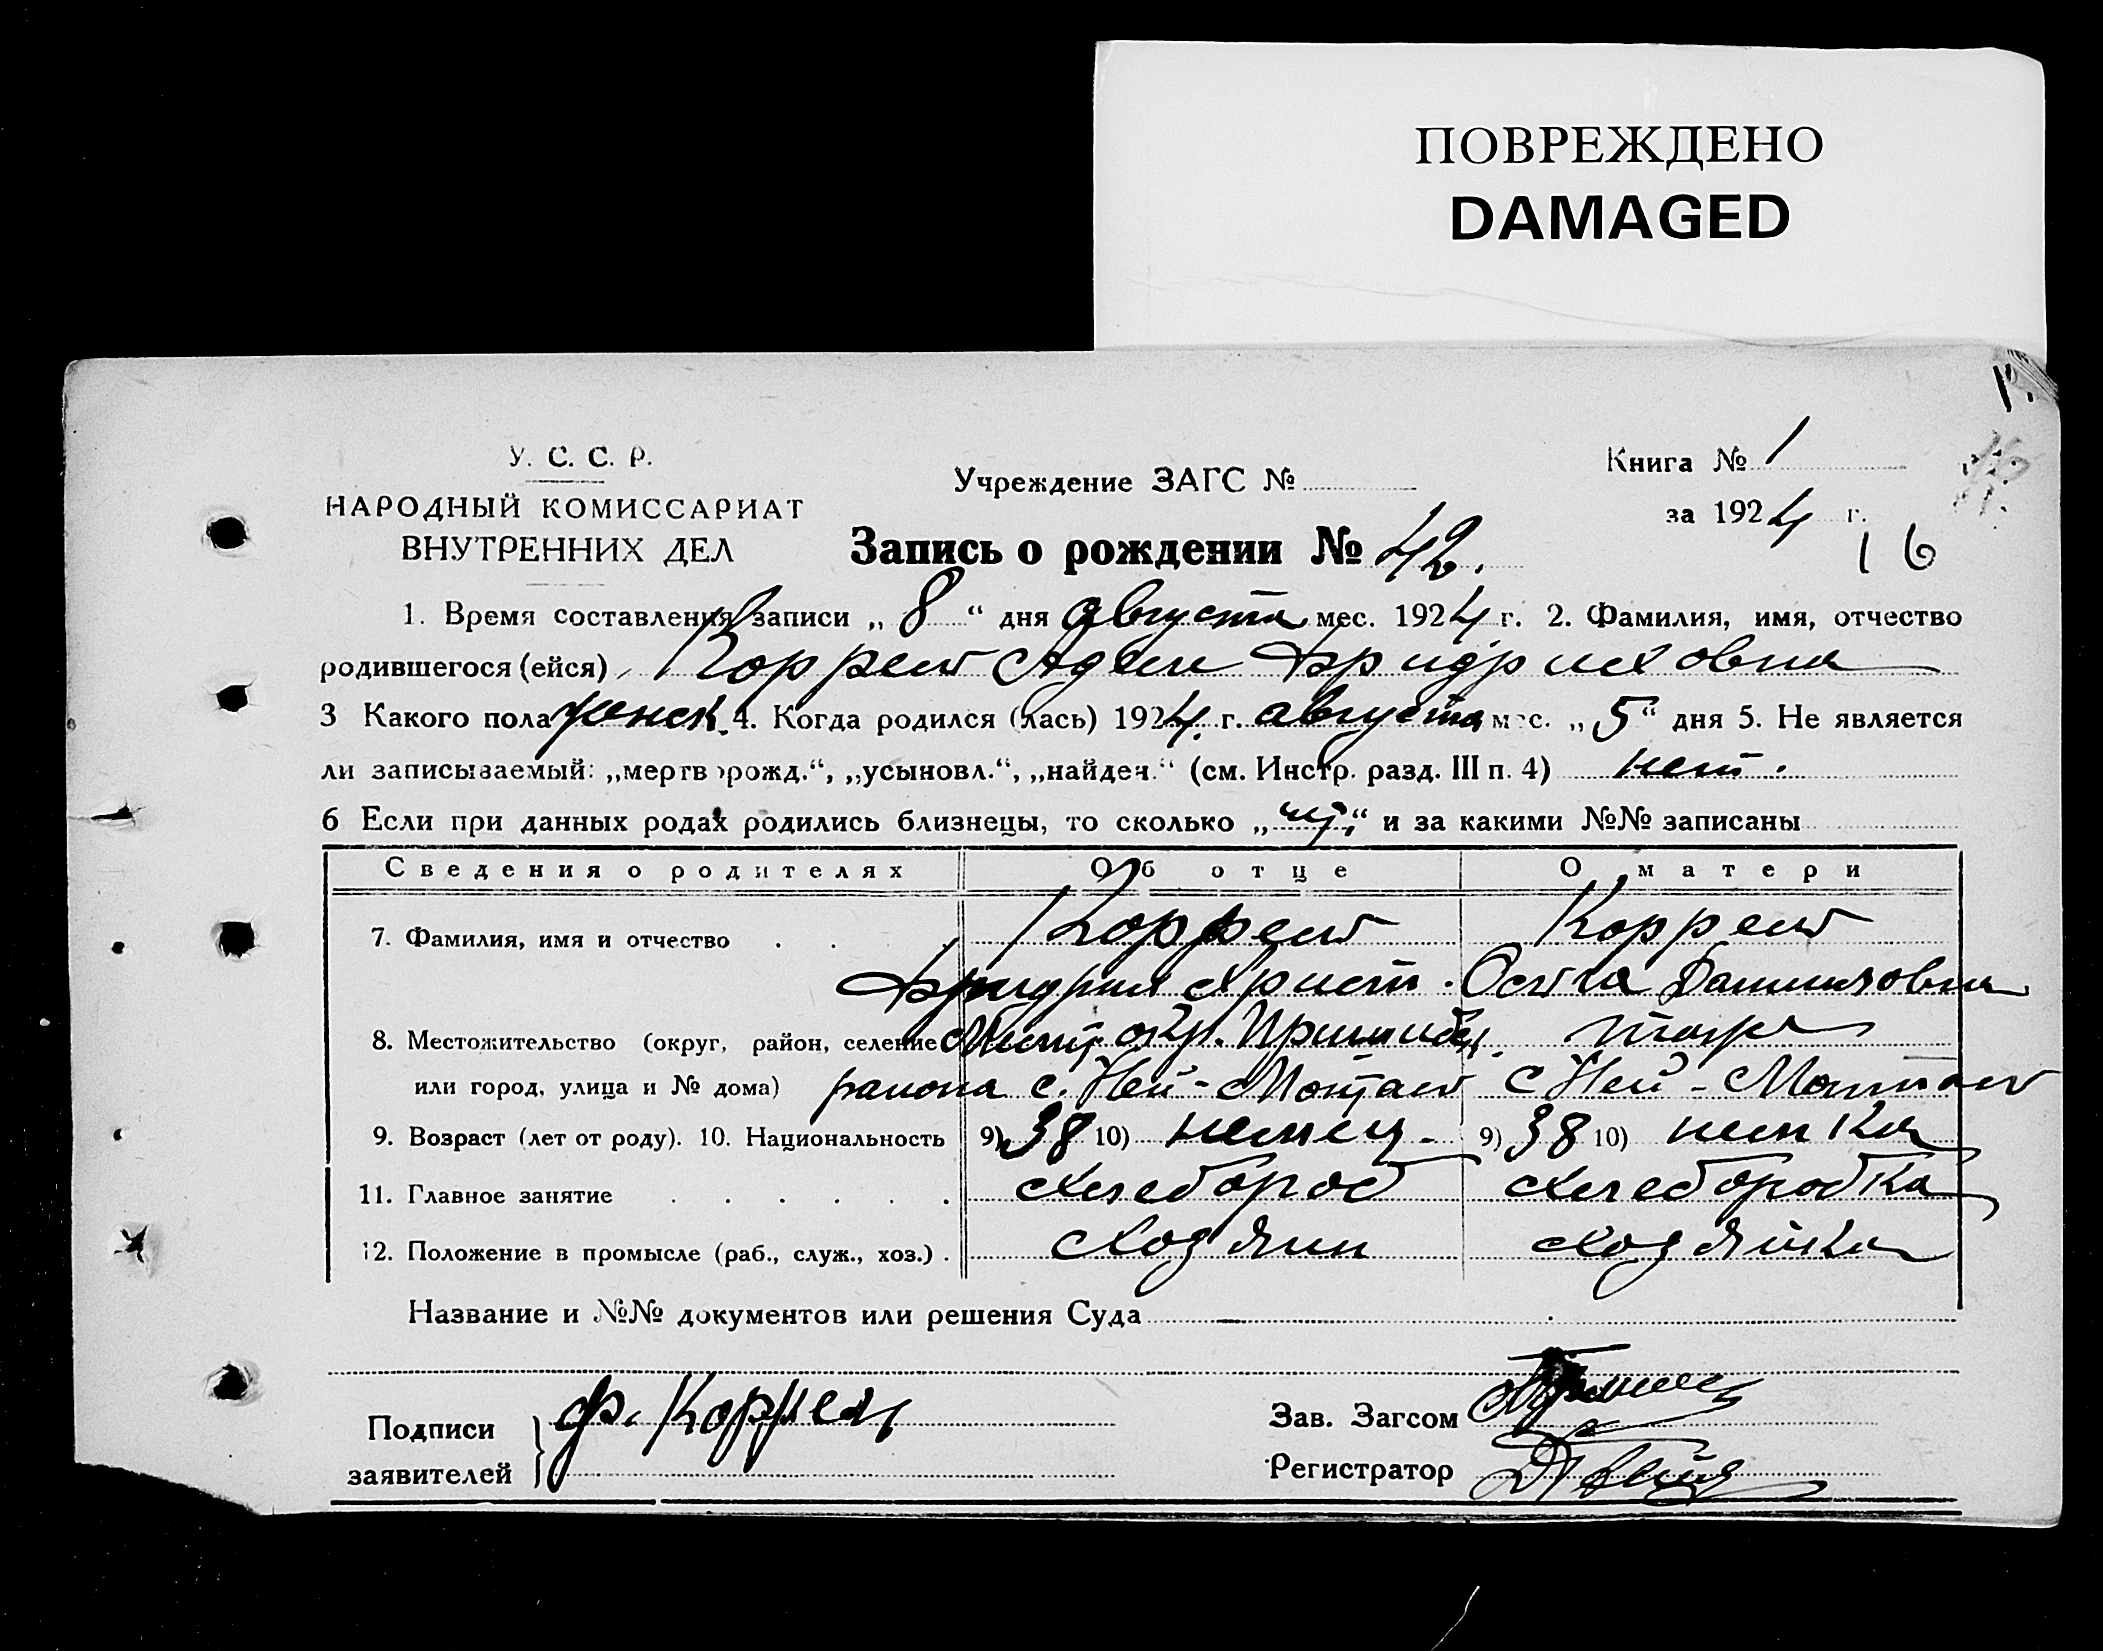 ПОВРЕЖДЕНО
DAMAGED
У. С. С. Р.
НАРОДНЫЙ КОМИССАРИАТ
ВНУТРЕННИХ ДЕЛ
Учреждение ЗАГС №
Книга № 1
за 1924 г.
16
Запись о рождении № 42.
1. Время составления записи „ 8 “ дня августа мес. 1924 г. 2. Фамилия, имя, отчество
родившегося (ейся) Коррель Адель Фридриховна
3 Какого пола женск. 4. Когда родился (лась) 1924 г. августа мес. „ 5 “ дня 5. Не является
ли записываемый: „мертворожд.“, „усыновл.“, „найден.“ (см. Инстр. разд. III п. 4) нет.
6 Если при данных родах родились близнецы, то сколько „ “ и за какими №№ записаны
Сведения о родителях Об отце О матери
7. Фамилия, имя и отчество Коррель Коррель
Фридрих Христ. Данииловна
8. Местожительство (округ, район, селение Мелит. окр. Пришиб. тоже
или город, улица и № дома) района с. Ней-Монталь с Ней-Монталь
9. Возраст (лет от роду). 10. Национальность 9) 38 10) немец. 9) 38 10) немка
11. Главное занятие хлебороб хлеборобка
12. Положение в промысле (раб., служ., хоз.) хозяин хозяйка
Название и №№ документов или решения Суда
Подписи заявителей Ф. Коррель
Зав. Загсом
Регистратор